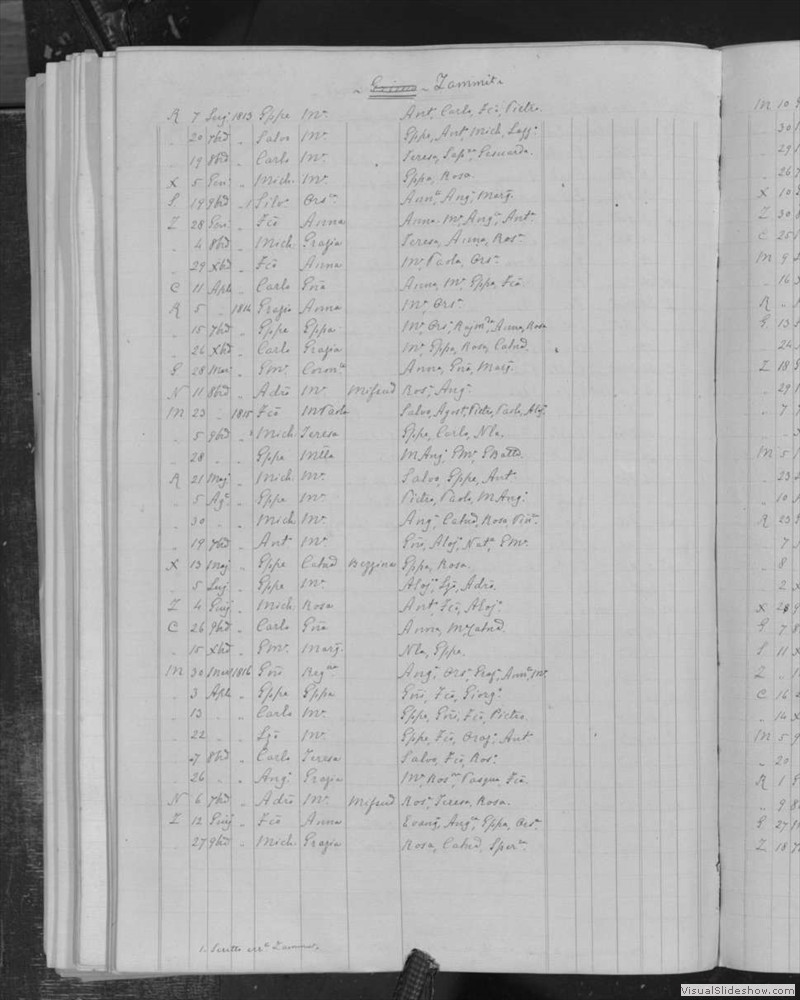 ~ Grima ~ Zammit ~
R 7 Lug 1813 Gppe Mª Antº, Carlo, Fcõ, Pietro.
" 20 7brẽ " Salvº Mª Gppe, Antº Mich,
" 19 8brẽ " Carlo Mª Teresa,
X 5 Gen " Mich. Mª Gppa, Rosa.
S 19 9brẽ " 1 Silvº Orsª Annª, Angª, Marg.
Z 28 Gen " Fcõ Anna Anna. Mª, Angª, Antª
" 4 8brẽ " Mich. Grazia Teresa, Anna, Rosª
" 29 Xbrẽ " Fcõ Anna Mª, Paola, Orsª
C 11 Aple " Carlo Gnã Anna, Mª, Gppa, Fcã.
R 5 " 1814 Grazio Anna Mª, Orsª
" 15 7brẽ " Gppe Gppa Mª, Orsª, Raymª, Anna, Rosa
" 26 Xbrẽ " Carlo Grazia Mª, Gppa, Rosa, Catnã.
G 28 Mar " Emª Coronª Anna, Gnã, Marg.
N 11 8brẽ " Adrõ Mª Mifsud Rosª, Angª
M 23 " 1815 Fcõ M Paola Salvº, Agostº, Pietro, Paolo, Aloj.
" 5 9brẽ " Mich. Teresa Gppe, Carlo, Nla.
" 28 " " Gppe Mtta M Angª, Emª, GBattã.
R 21 Maj " Mich. Mª Salvº, Gppe, Antº
" 5 Agº " Gppe Mª Pietro, Paolo, M Angº
" 30 " " Mich. Mª Angª, Catnã, Rosa,
" 19 7brẽ " Antº Mª Gnã, Alojª, Natª, Emª.
X 13 Maj " Gppe Catnã Bezzina Gppa, Rosa.
" 5 Lug " Gppe Mª Alojº, Lzõ, Adrõ.
Z 4 Giug " Mich. Rosa Antº Fcõ, Alojº
C 26 9brẽ " Carlo Gnã Anna, Mª, Catnã.
" 15 Xbrẽ " Emª Marg. Nla, Gppa.
M 30 Mar 1816 Gnõ Regnª Angª, Orsª, Graz, Annª, Mª
" 3 Aple " Gppe Gppa Gnõ, Fcõ, Giorgº
" 13 " " Carlo Mª Gppe, Gnõ, Fcõ, Pietro.
" 22 " Lzõ Mª Gppe, Fcõ, Orazº, Antº
" 7 8brẽ " Carlo Teresa Salvº, Fcõ, Rosº
" 26 " " Angº Grazia Mª, Rosª, Pasqua, Fcã.
N 6 7brẽ " Adrõ Mª Mifsud Rosª, Teresa, Rosa.
Z 12 Giug " Fcõ Anna Evang, Angª, Gppa, Orsª
27 9brẽ " Mich. Grazia Rosa, Catnã, Sperª
1. Scritto
M 10
30
29
26
X 10
Z 30
C 25
M 9
16
R
G 13
24
Z 18
29
7
M 5
23
10
R 23
7
8
2
X 28
G 7
S 11
Z
C 16
14
M 5
20
R 1
9
G 27
Z 18
VisualSlideshow.com